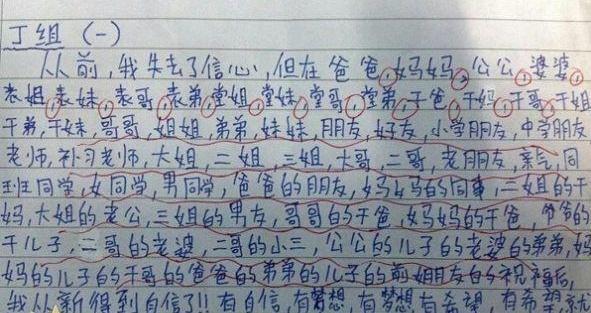 丁组 (一)
从前,我失去了信心,但在爸爸,妈妈,公公,婆婆,
表姐,表妹,表哥,表弟,堂姐,堂妹,堂哥,堂弟,干爸,干妈,干哥,干姐
干弟,干妹,哥哥,姐姐,弟弟,妹妹,朋友,好友,小学朋友,中学朋友
老师,补习老师,大姐,二姐,三姐,大哥,二哥,老朋友,亲气,同
班同学,女同学,男同学,爸爸的朋友,妈妈的同事,二姐的干
妈,大姐的老公,三姐的男友,哥哥的干爸,妈妈的干爸,爷爷的
干儿子,二哥的老婆,二哥的小三,公公的儿子的老婆的弟弟,妈
妈的儿子的干哥的爸爸的弟弟的儿子的前女朋友的祝福后,
我从新得到自信了!!有自信,有梦想,有梦想有希望,有希望就